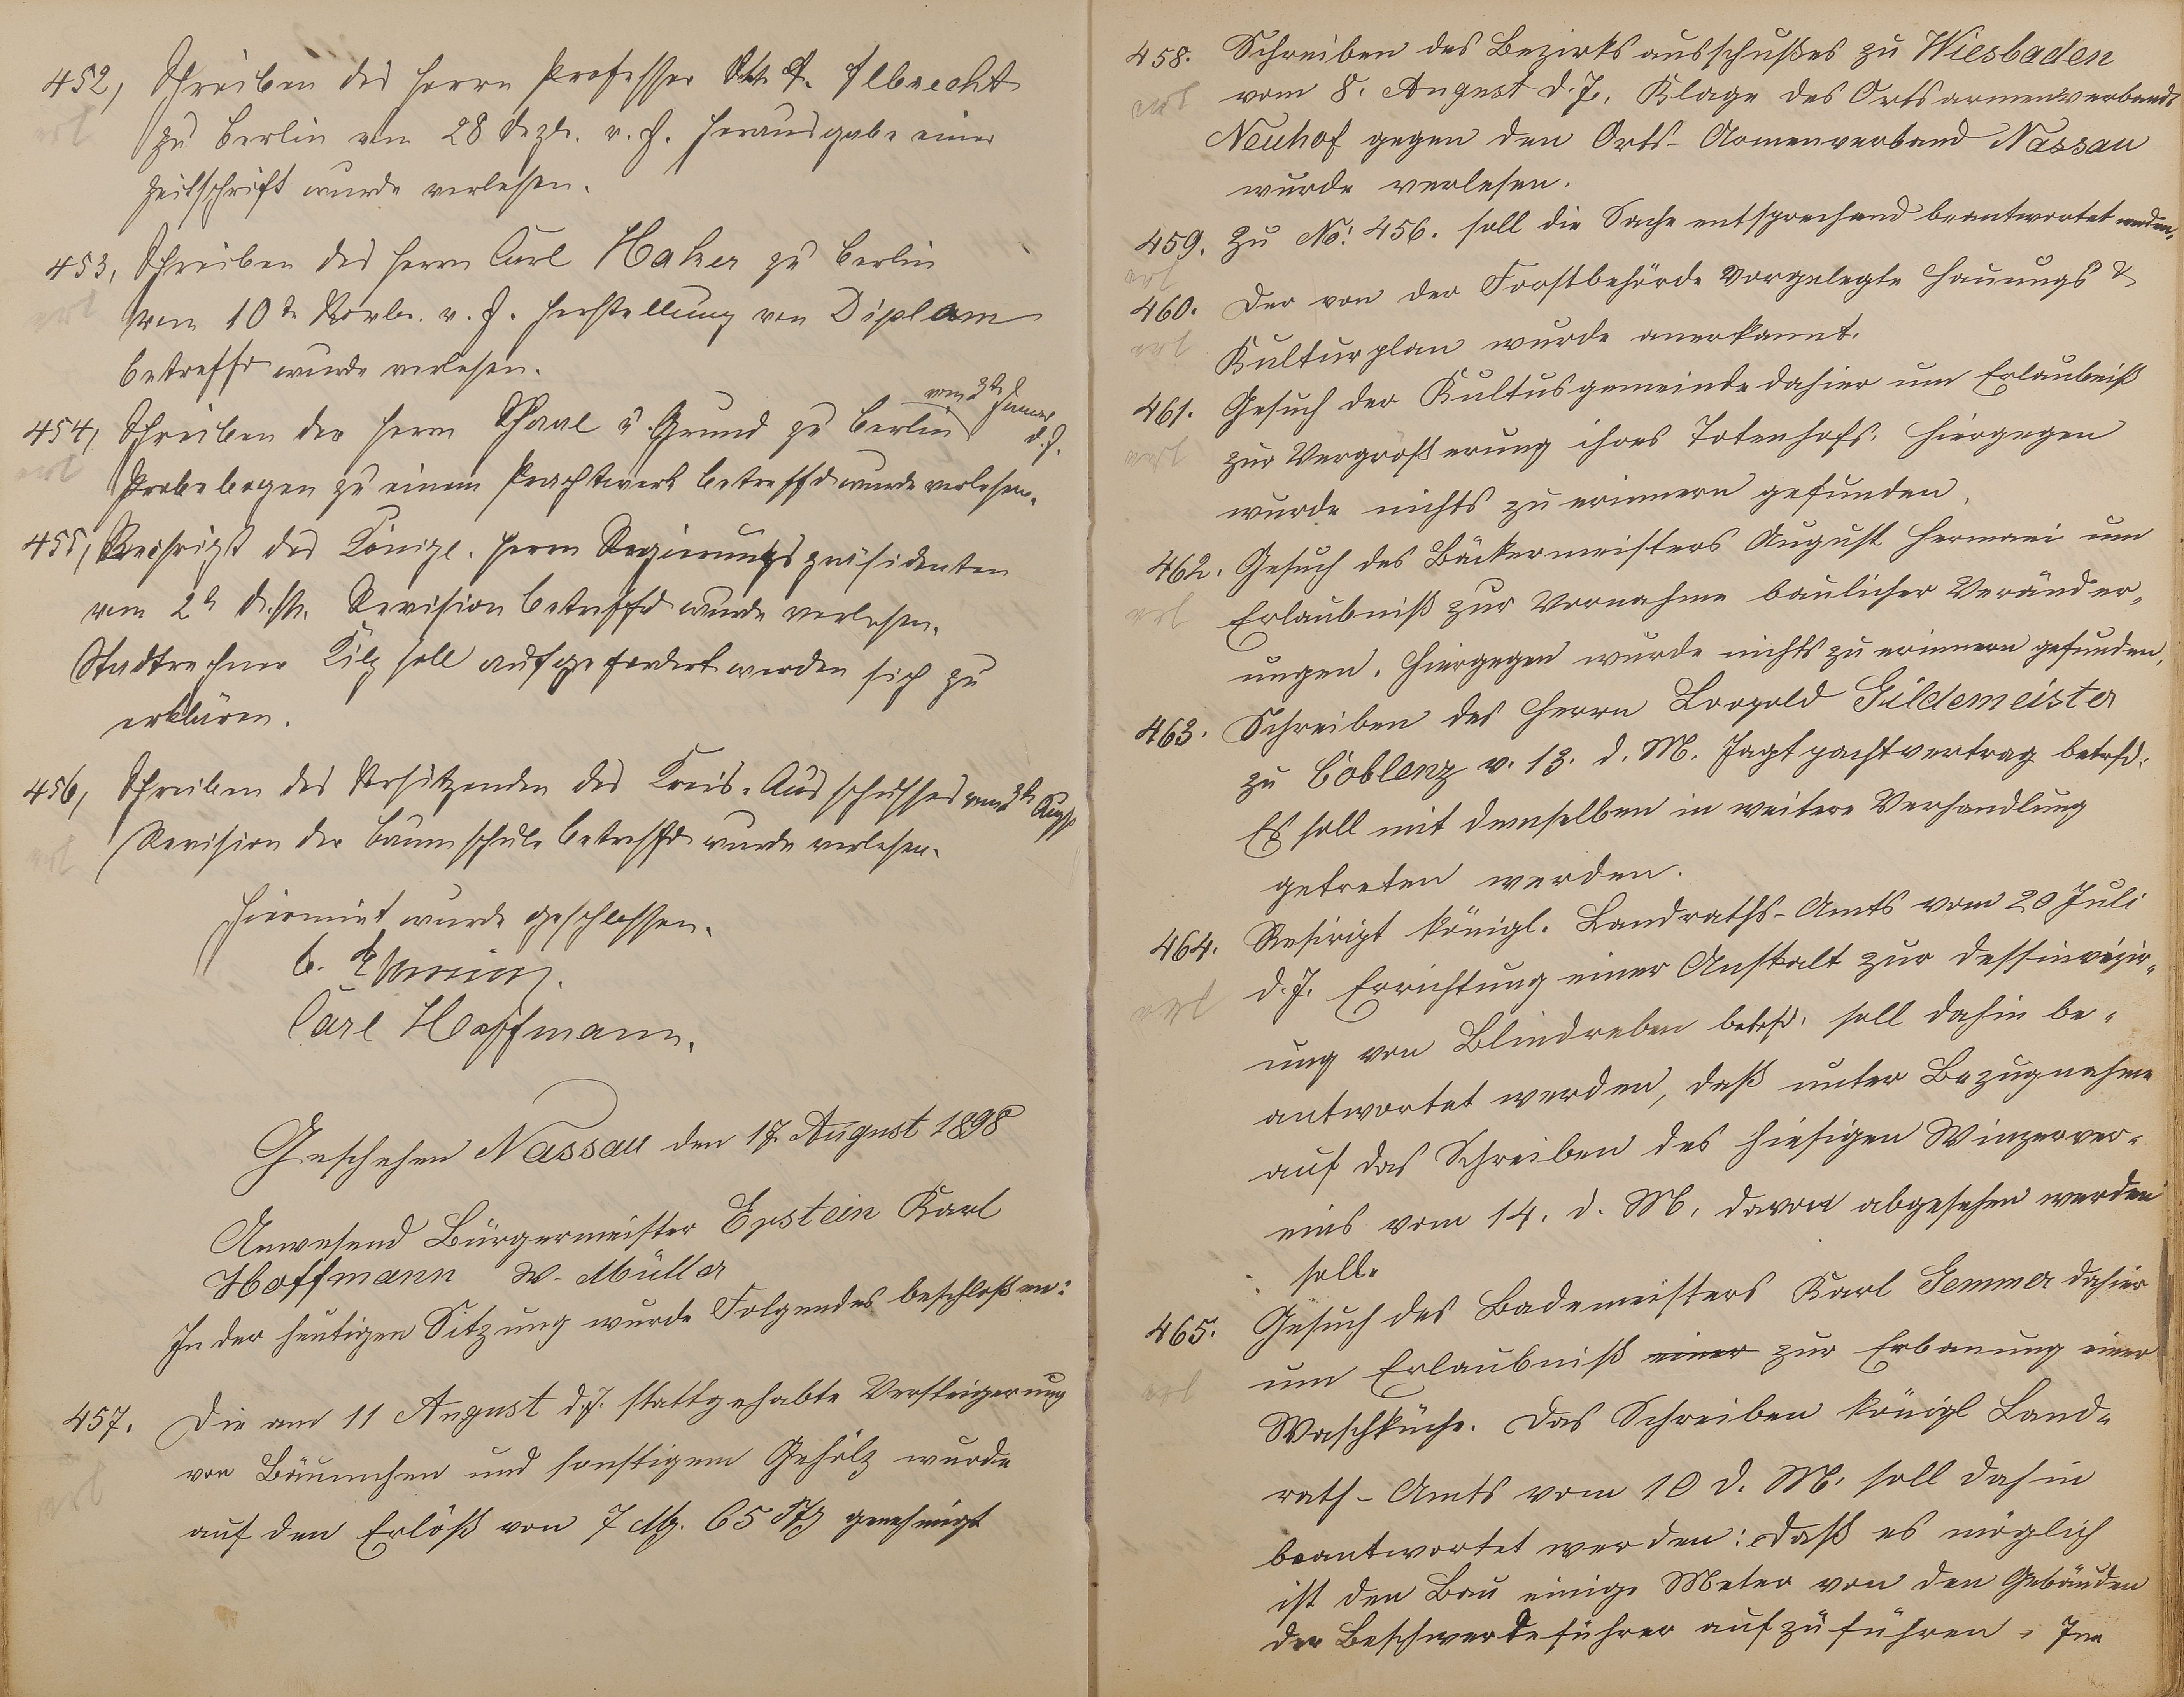 452, Schreiben des Herrn Professor Albrecht
erl
zu Berlin vom 28 Dezbr. v. J. Herausgabe einer
Zeitschrift wurde verlesen.
453, Schreiben des Herrn Carl Haker zu Berlin
erl
vom 10t Novbr. v. J. Herstellung von Diplom
betreffd wurde verlesen.
454, Schreiben der Herrn Schaal u. Grund zu Berlin vom 3t Januar d. J.
erl
Probebogen zu einem Prachtwerk betreffd wurde verlesen.
455, Rescript des Königl. Herrn Regierungspräsidenten
vom 2t d. Mts. Revision betreffd wurde verlesen.
Stadtrechner Kilz soll aufgefordert werden sich zu
erklären.
456, Schreiben des Vorsitzenden des Kreis-Ausschusses vom 3t August
erl
Revision der Baumschule betreffd wurde verlesen.
Hiermit wurde geschlossen.
Carl Hoffmann.
Geschehen Nassau den 17. August 1898
Anwesend Bürgermeister Epstein Karl
Hoffmann W. Müller
In der heutigen Sitzung wurde Folgendes beschloßen:
457. Die am 11 August d. J. stattgehabte Versteigerung
von Bäumchen und sonstigem Gehölz wurde
erl
auf den Erlöß von 7 M. 65 Pfg genehmigt
458. Schreiben des Bezirksausschußes zu Wiesbaden
erl
vom 8. August d. J. Klage des Ortsarmenverbands
Neuhof gegen den Orts-Armenverband Nassau
wurde verlesen.
459. Zu No: 456. soll die Sache entsprechend beantwortet werden.
erl
460. Der von der Forstbehörde vorgelegte Hauungs &
erl
Kulturplan wurde anerkannt.
461. Gesuch der Kultusgemeinde dahier um Erlaubniß
erl
zur Vergrößerung ihres Totenhofs. Hiergegen
wurde nichts zu erinnern gefunden.
462. Gesuch des Bäckermeisters August Hermani um
erl
Erlaubniß zur Vornahme baulicher Veränder-
ungen. Hiergegen wurde nichts zu erinnern gefunden.
463. Schreiben des Herrn Leopold Gildemeister
zu Coblenz v. 13. d. M. Jagtpachtvertrag betrfd.
Es soll mit demselben in weitere Verhandlung
getreten werden.
464. Resiript königl. Landraths-Amts vom 20 Juli
erl
d. J. Errichtung einer Anstalt zur Dessinvizir-
ung von Blindreben betrfd. soll dahin be-
antwortet werden, daß unter Bezugnahme
auf das Schreiben des hiesigen Winzerver-
eins vom 14. d. M. davon abgesehen werden
soll.
465. Gesuch des Bademeisters Karl Gemmer dahier
erl
um Erlaubniß einer zur Erbauung einer
Waschküche. Das Schreiben königl Land-
rath-Amts vom 10 d. M. soll dahin
beantwortet werden: daß es möglich
ist den Bau einige Meter von den Gebäuden
der Beschwerdeführer aufzuführen. Im